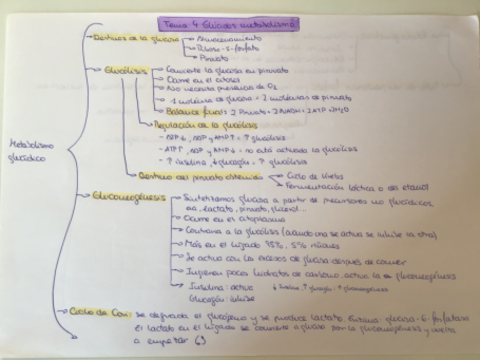 Tema 4: Glúcidos metabolismo
Metabolismo glucídico
Destinos de la glucosa
Almacenamiento
Ribosa-5-fosfato
Piruvato
Glucólisis
Convierte la glucosa en piruvato
Ocurre en el citosol
No necesita presencia de O2
1 molécula de glucosa = 2 moléculas de piruvato
Balance final: 2 Piruvato + 2 NADH + 2 ATP + 2H2O
Regulación de la glucólisis
- ATP↓, ADP y AMP↑ = ↑ glucólisis
- ATP↑, ADP y AMP↓ = no está activada la glucólisis
- ↑ insulina, ↓ glucagón = ↑ glucólisis
Destino del piruvato obtenido
Ciclo de Krebs
Fermentación láctica o del etanol
Gluconeogénesis
Sintetizamos glucosa a partir de precursores no glucídicos,
aa, lactato, piruvato, glicerol...
Ocurre en el citoplasma
Contraria a la glucólisis (cuando una se activa se inhibe la otra)
Más en el hígado 95%, 5% riñones
Se activa con los excesos de glucosa después de comer
Ingieren pocos hidratos de carbono, activa la gluconeogénesis
Insulina: activa
Glucagón: inhibe
↓ insulina, ↑ glucagón = ↑ gluconeogénesis
Ciclo de Cori: se degrada el glucógeno y se produce lactato. Enzima: glucosa-6-fosfatasa
El lactato en el hígado se convierte a glucosa por la gluconeogénesis y vuelta
a empezar